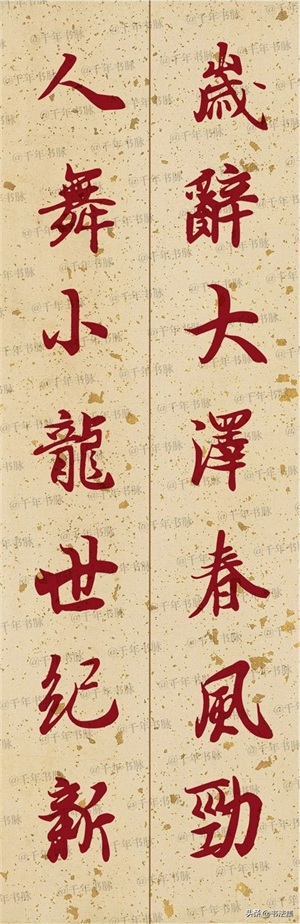 歲辭大澤春風勁
人舞小龍世紀新
@千年书脉
头条@书法屋